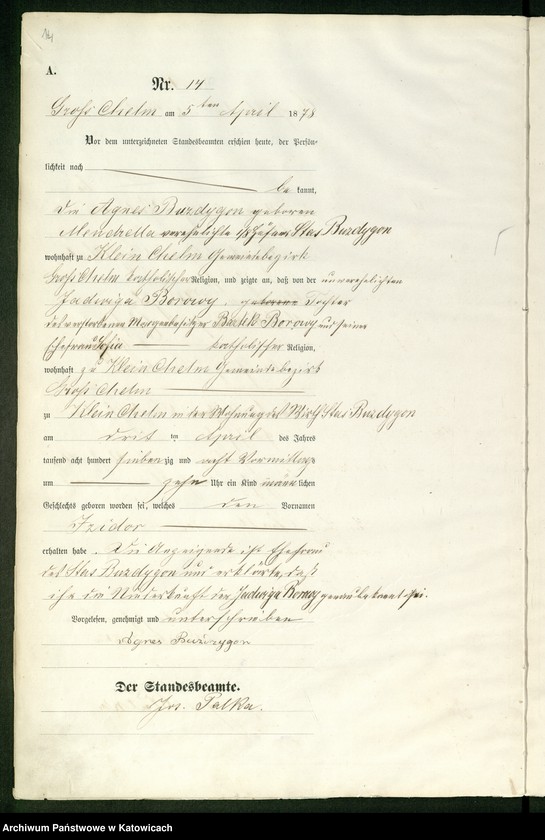 14
A.
Nr. 14
Gross Chelm am 5ten April 1878
Vor dem unterzeichneten Standesbeamten erschien heute, der Persön-
lichkeit nach
be kannt,
die Agnes Burdygon geboren
verehelichte Stas Burdygon
wohnhaft zu Klein Chelm Gemeindebezirk
Gross Chelm katholischer Religion, und zeigte an, daß von der unverehelichten
Jadwiga Borowy, geborene Tochter
des verstorbenen Morgenbesitzer Borowy und seiner
Ehefrau Sofia katholischer Religion,
wohnhaft zu Klein Chelm Gemeindebezirk
Gross Chelm
zu Klein Chelm in der Wohnung des Wirth Stas Burdygon
am drit ten April des Jahres
tausend acht hundert sieben zig und acht Vormittags
um zehn Uhr ein Kind männ lichen
Geschlechts geboren worden sei, welches den Vornamen
Izidor
erhalten habe. Die Anzeigende ist Ehefrau
des Stas Burdygon und erklärte, daß
ihr die Niederkunft der Jadwiga Borowy genau bekannt sei.
Vorgelesen, genehmigt und unterschrieben
Agnes Burdygon
Der Standesbeamte.
Jos. Palka.
Archiwum Państwowe w Katowicach